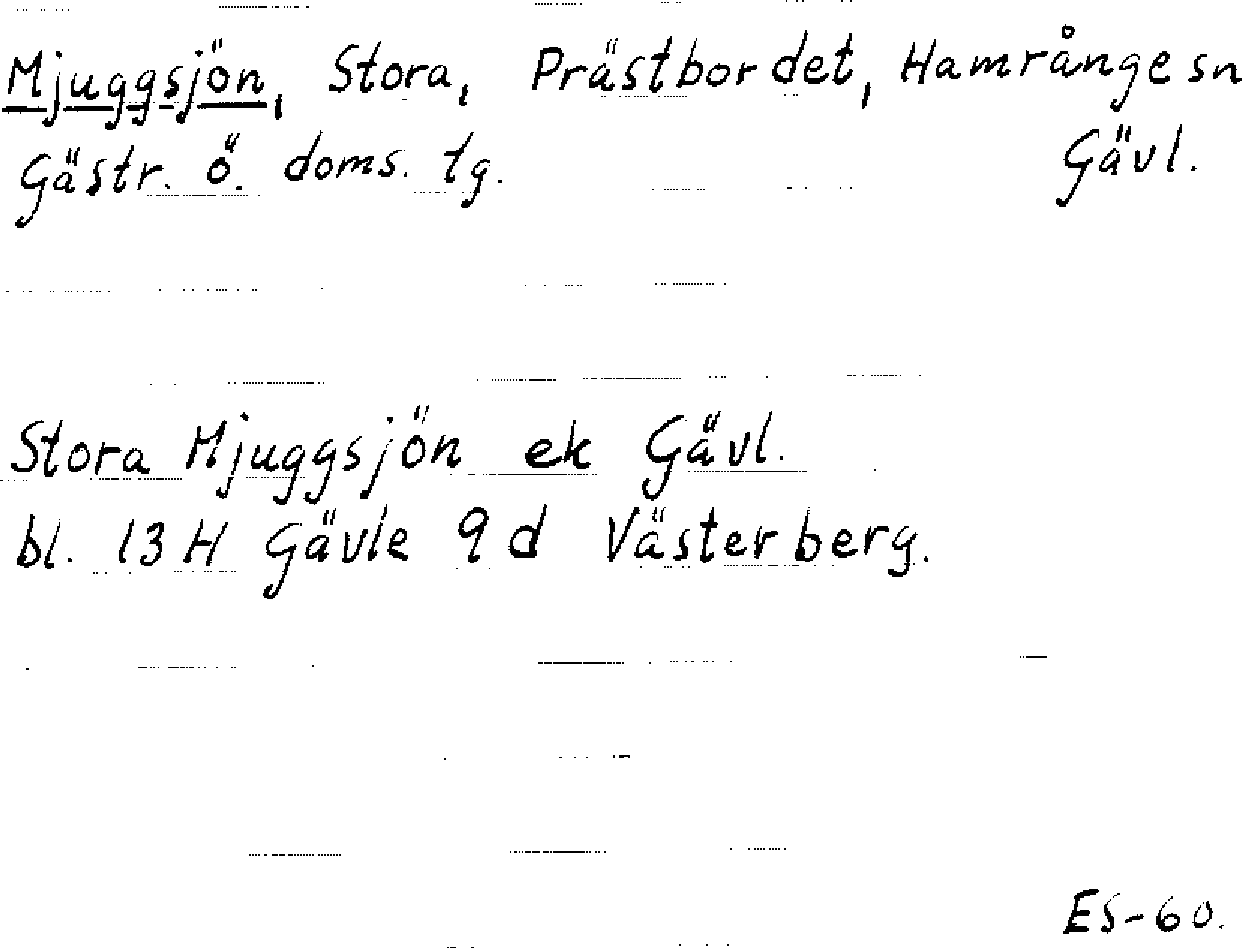 Mjuggsjön, Stora, Prästbordet, Hamrånge sn
Gästr. ö. doms. tg. Gävl.
Stora Mjuggsjön ek Gävl.
bl. 13 H Gävle 9 d Västerberg.
ES-60.